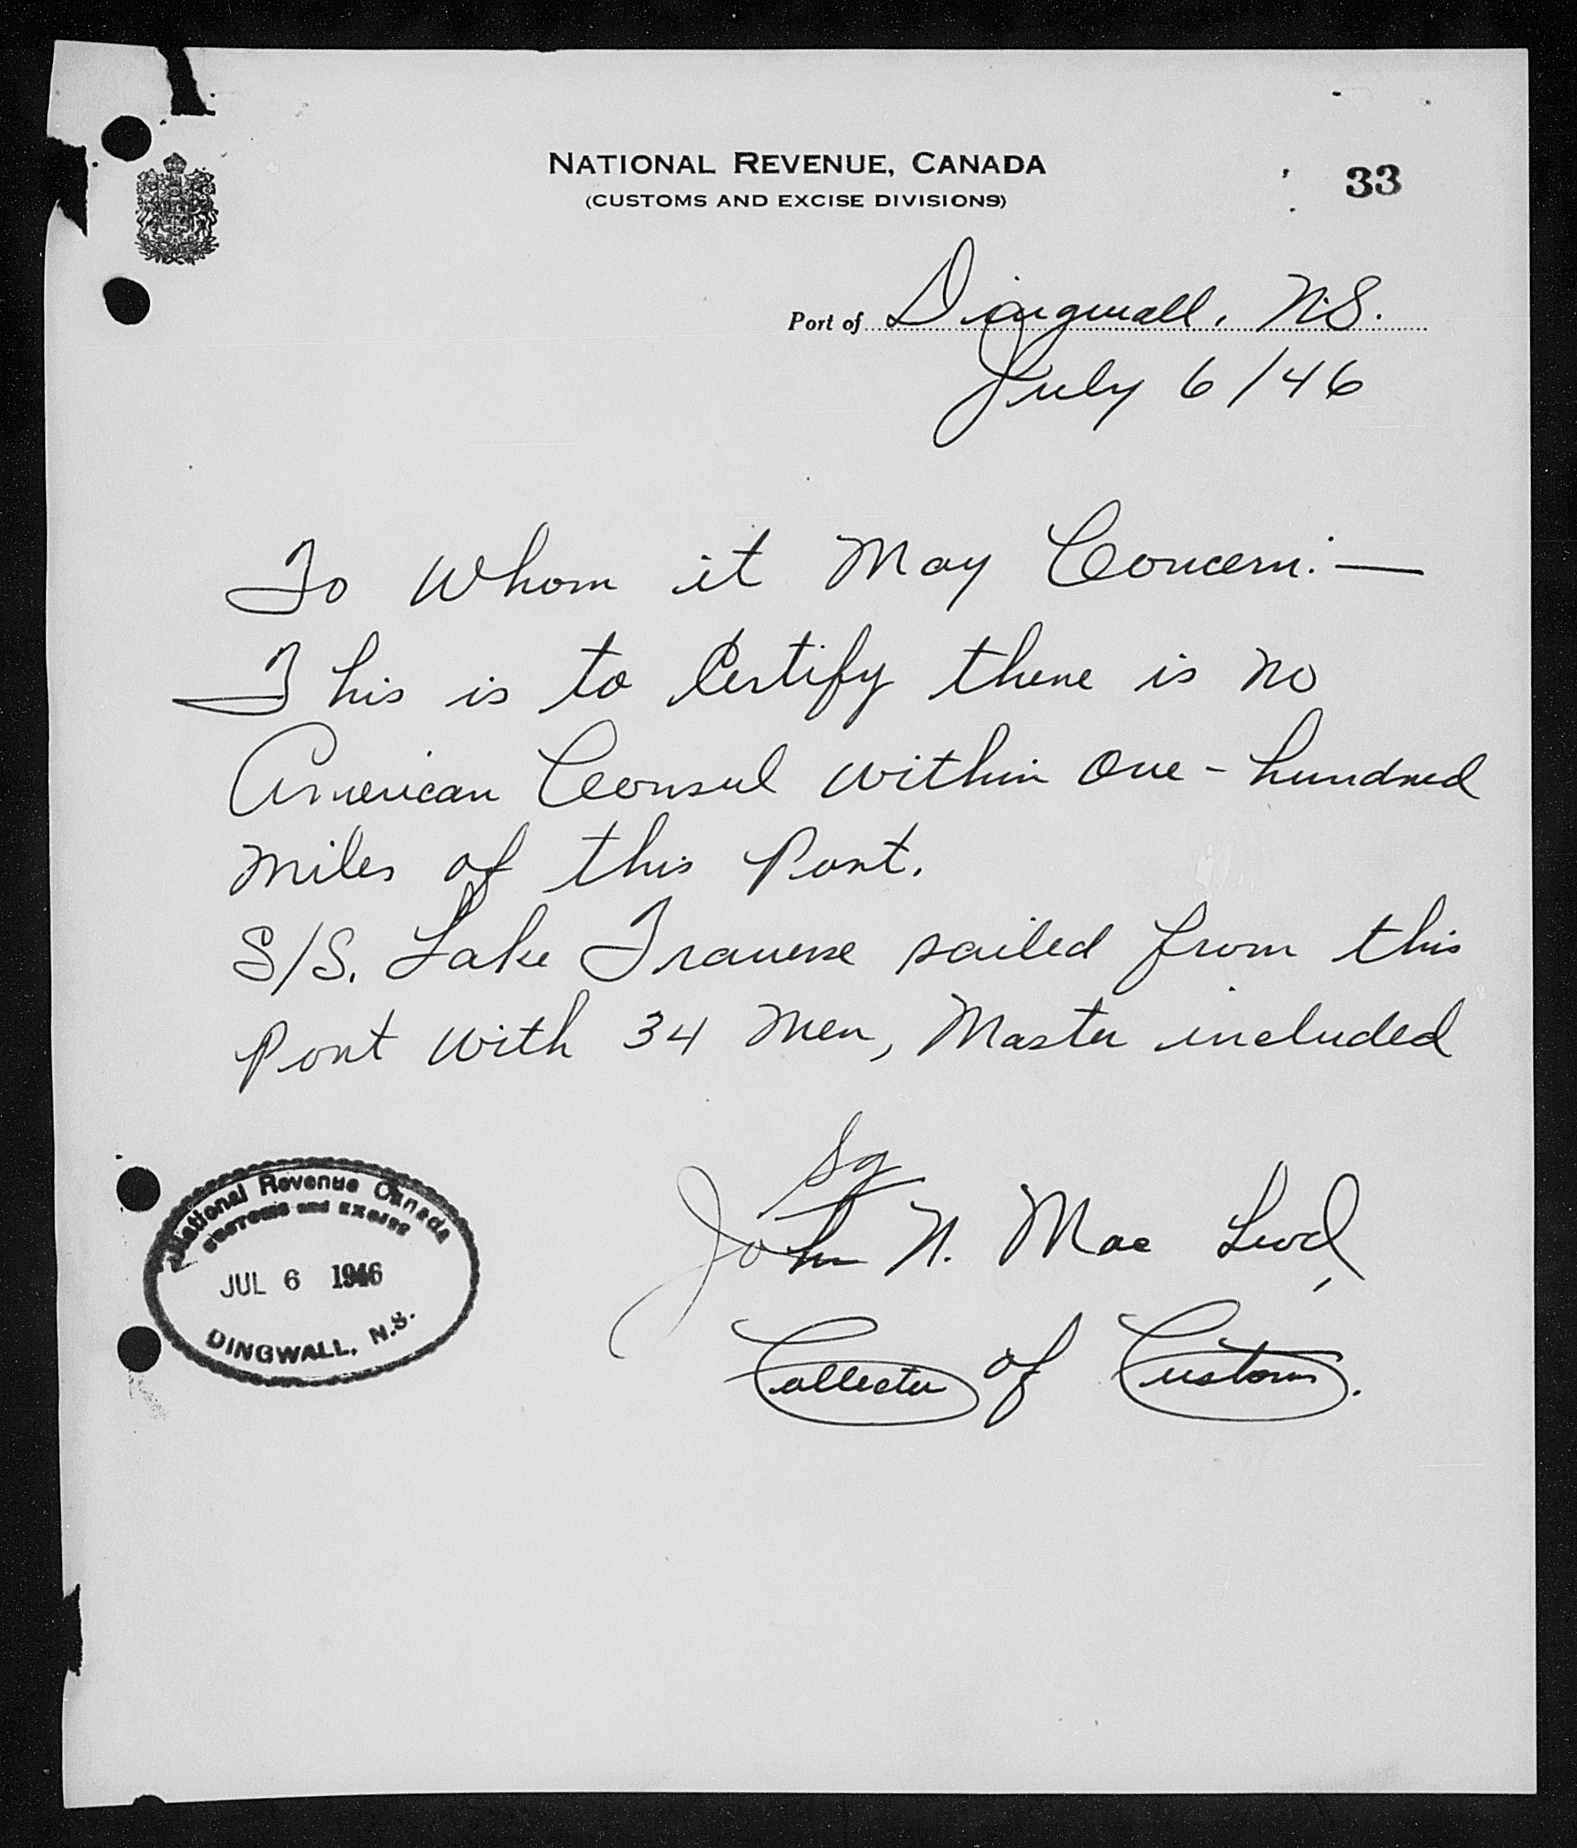 NATIONAL REVENUE, CANADA
(CUSTOMS AND EXCISE DIVISIONS)
33
Port of Dingwall, N.S.
July 6/46
To Whom it May Concern:—
This is to Certify there is no
American Consul within one-hundred
miles of this Port.
S/S. Lake Traverse sailed from this
Port with 34 men, Master included
Sg
John N. Mac Leod,
Collector of Customs.
National Revenue Canada
CUSTOMS and EXCISE
JUL 6 1946
DINGWALL, N.S.